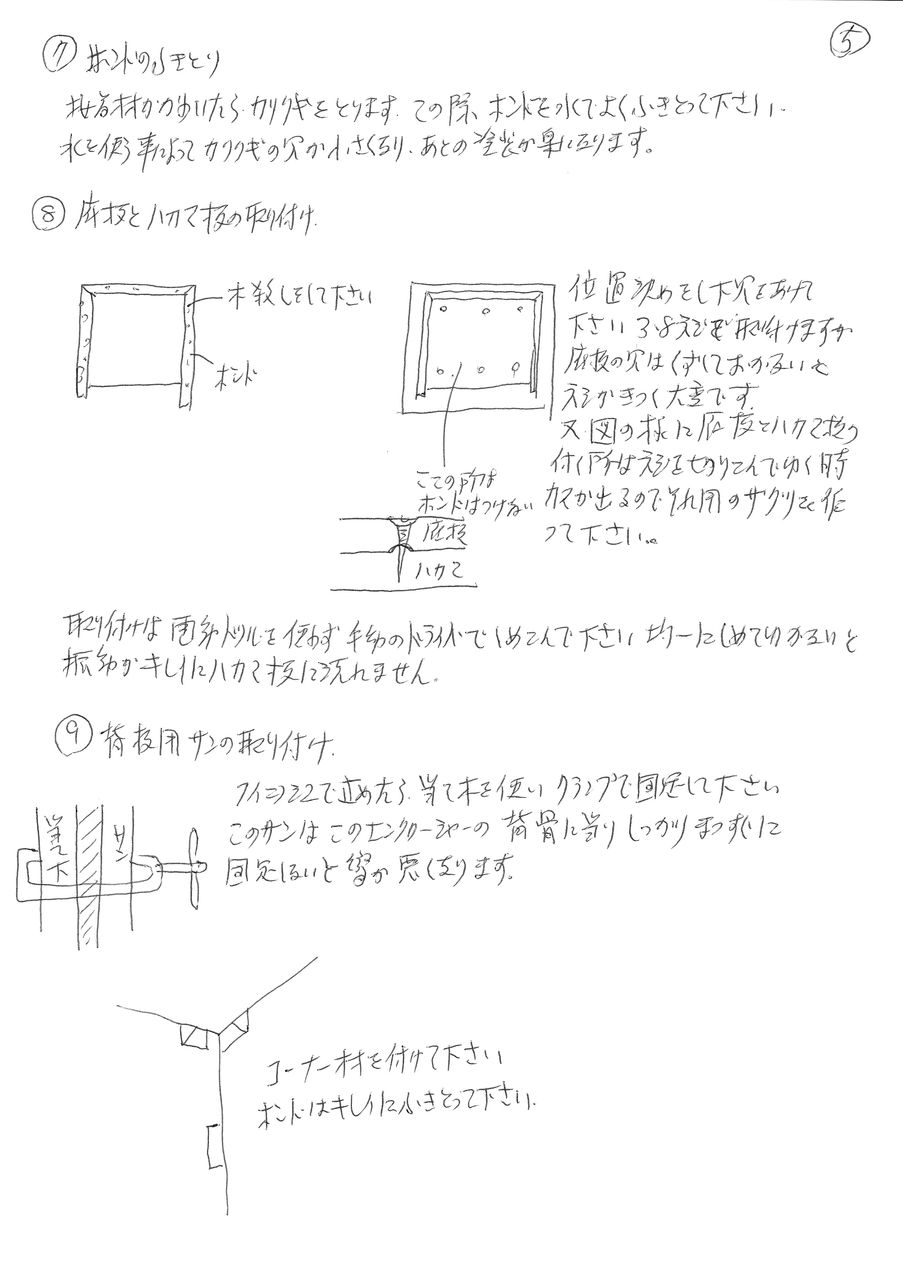 ⑤
⑦ ボンドのふきとり
接着材がかわいたら、カリクギをとります。この際、ボンドを水でよくふきとって下さい。
水を使う事によってカリクギの穴が小さくなり、あとの塗装が楽になります。
⑧ 底板とハカマ板の取り付け
木殺しをして下さい
ボンド
位置決めをし下穴をあけて
下さい 3.8ネジで取り付けますが
底板の穴は くずしておかないと
ネジがきつく大変です。
又、図の様に底板とハカマ板の
付く所はネジを切りこんでゆく時
カスが出るのでそれ用のザグリを作
って下さい。
ここの所は
ボンドはつけない
底板
ハカマ
取り付けは電動ドリルを使わず手動のドライバーでしめこんで下さい パワーにしめて いかないと
振動がキレイにハカマ板に流れません。
⑨ 背板用サンの取り付け
フィニシュで止めたら、当て木を使い クランプで固定して下さい
このサンはこのエンクロージャーの背骨に当り しっかりまっすぐに
固定しないと響が悪くなります。
当て木
サン
コーナー材を付けて下さい
ボンドはキレイにふきとって下さい。